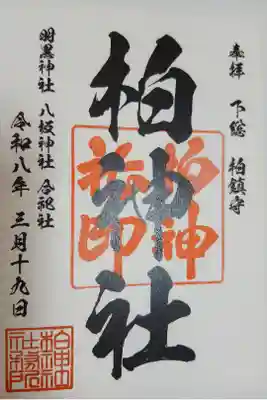 奉拝 下総 柏鎮守
柏神社
羽黒神社 八坂神社 合祀社
令和八年 三月十九日
柏神社印